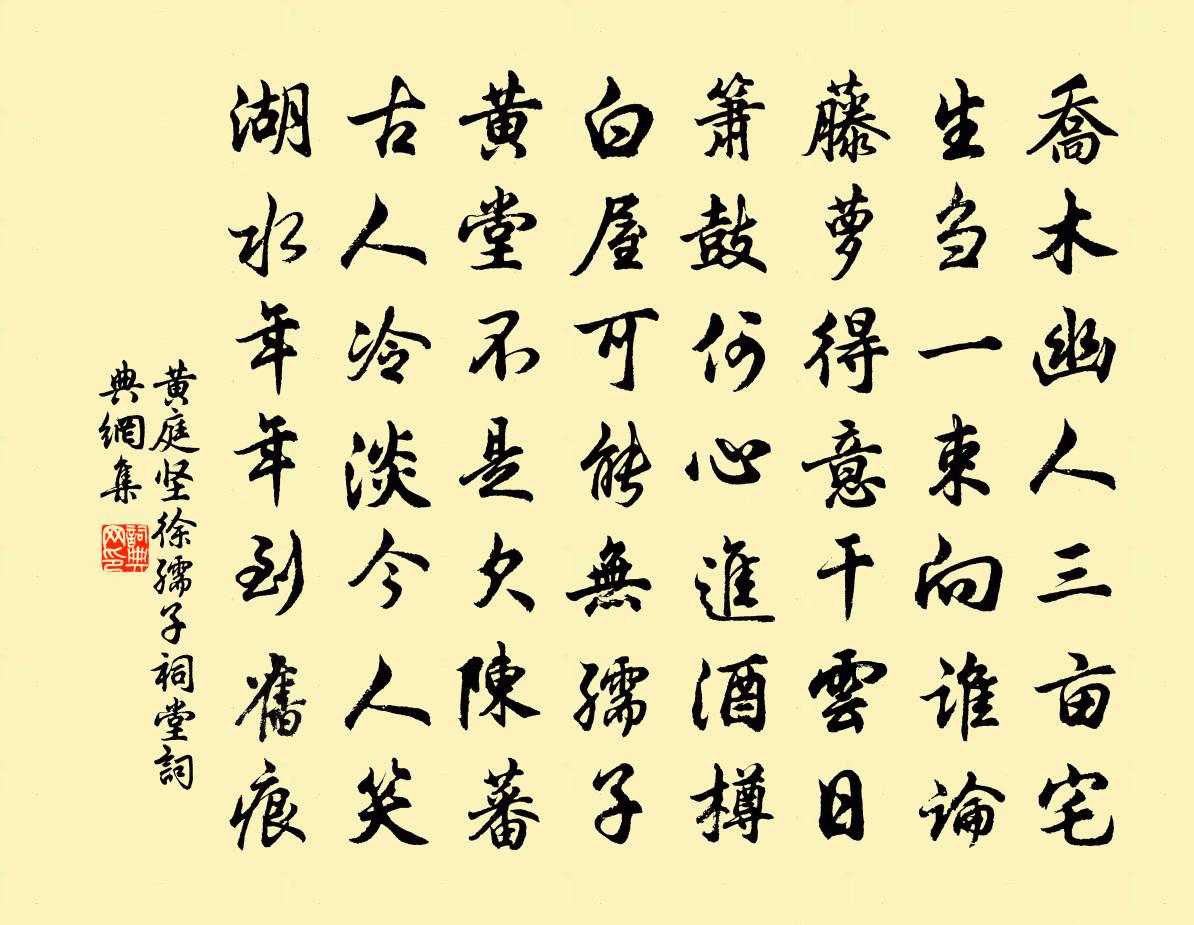 喬木幽人三亩宅
生刍一束向誰論
藤萝得意干雲日
簫鼓何心進酒樽
白屋可能無孺子
黄堂不是欠陳蕃
古人冷淡今人笑
湖水年年到舊痕
黄庭坚徐孺子祠堂詞
典網集
詞典
网印